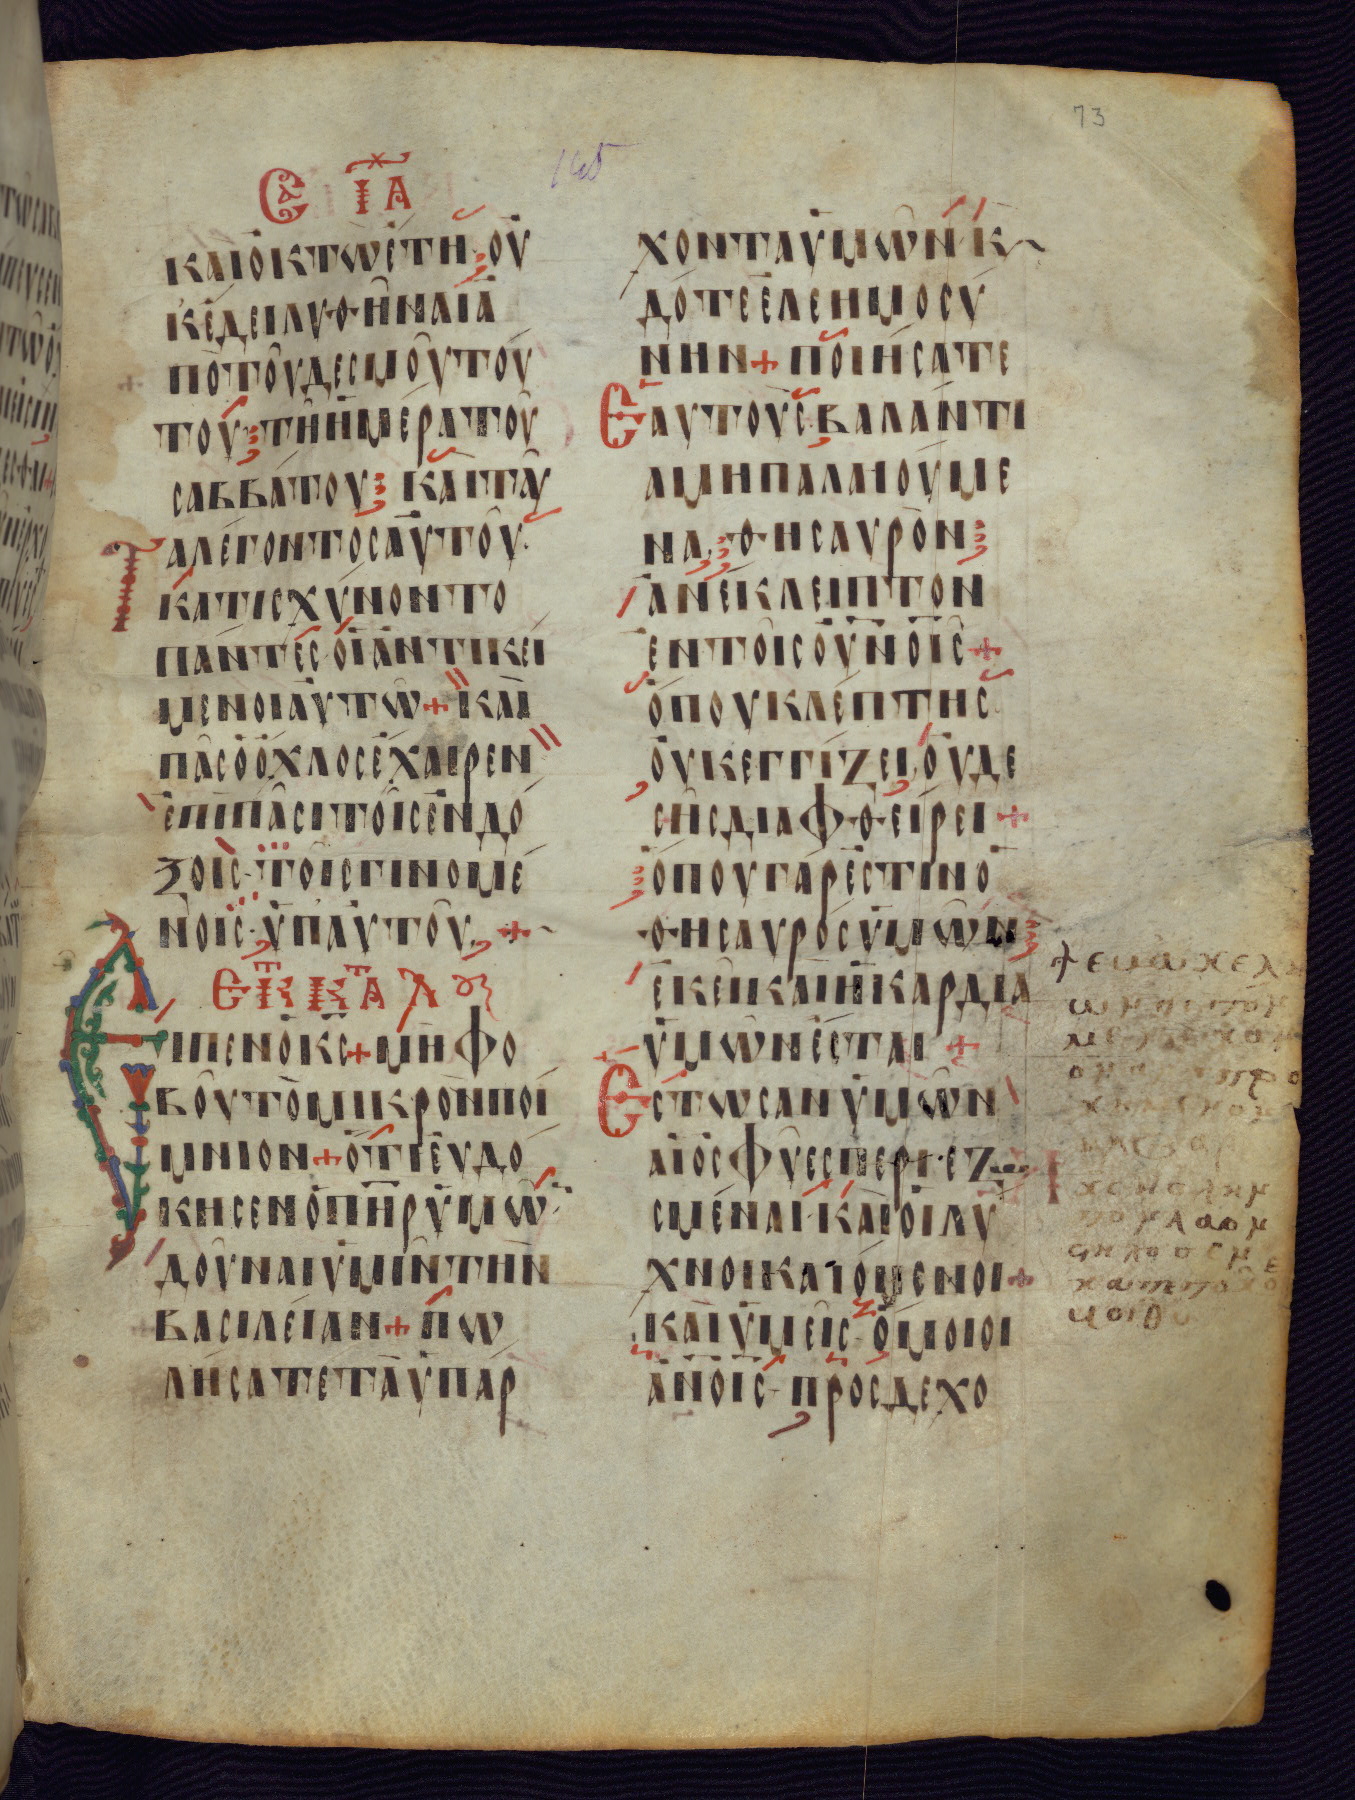 73
ΣΑ ΙΑ
ΚΑΙΟΚΤΩΕΤΗ ΟΥ
ΚΕΔΕΙΛΥΘΗΝΑΙΑ
ΠΟΤΟΥΔΕCΜΟΥΤΟΥ
ΤΟΥ ΤΗΗΜΕΡΑΤΟΥ
CΑΒΒΑΤΟΥ ΚΑΙΤΑΥ
ΤΑΛΕΓΟΝΤΟCΑΥΤΟΥ
ΚΑΤΙCΧΥΝΟΝΤΟ
ΠΑΝΤΕCΟΙΑΝΤΙΚΕΙ
ΜΕΝΟΙΑΥΤΩ + ΚΑΙ
ΠΑCΟΟΧΛΟCΕΧΑΙΡΕΝ
ΕΠΙΠΑCΙΤΟΙCΕΝΔΟ
ΞΟΙC ΤΟΙCΓΙΝΟΜΕ
ΝΟΙC ΥΠΑΥΤΟΥ +
ΕΙΠΕΝΟΚC + ΜΗΦΟ
ΒΟΥΤΟΜΙΚΡΟΝΠΟΙ
ΜΝΙΟΝ + ΟΤΙΕΥΔΟ
ΚΗCΕΝΟΠΗΡΥΜΩ
ΔΟΥΝΑΙΥΜΙΝΤΗΝ
ΒΑCΙΛΕΙΑΝ + ΠΩ
ΛΗCΑΤΕΤΑΥΠΑΡ
ΧΟΝΤΑΥΜΩΝ Κ
ΔΟΤΕΕΛΕΗΜΟCΥ
ΝΗΝ + ΠΟΙΗCΑΤΕ
ΕΑΥΤΟΥC ΒΑΛΑΝΤΙ
ΑΜΗΠΑΛΑΙΟΥΜΕ
ΝΑ ΘΗCΑΥΡΟΝ
ΑΝΕΚΛΕΙΠΤΟΝ
ΕΝΤΟΙCΟΥΝΟΙC +
ΟΠΟΥΚΛΕΠΤΗC
ΟΥΚΕΓΓΙΖΕΙ ΟΥΔΕ
CΗCΔΙΑΦΘΕΙΡΕΙ +
ΟΠΟΥΓΑΡΕCΤΙΝΟ
ΘΗCΑΥΡΟCΥΜΩΝ
ΕΚΕΙΚΑΙΗΚΑΡΔΙΑ
ΥΜΩΝΕCΤΑΙ +
ΕCΤΩCΑΝΥΜΩΝ
ΑΙΟCΦΥΕCΠΕΡΙΕΖ
CΜΕΝΑΙ ΚΑΙΟΙΛΥ
ΧΝΟΙΚΑΙΟΜΕΝΟΙ +
ΚΑΙΥΜΕΙC ΟΜΟΙΟΙ
ΑΝΟΙC ΠΡΟCΔΕΧΟ